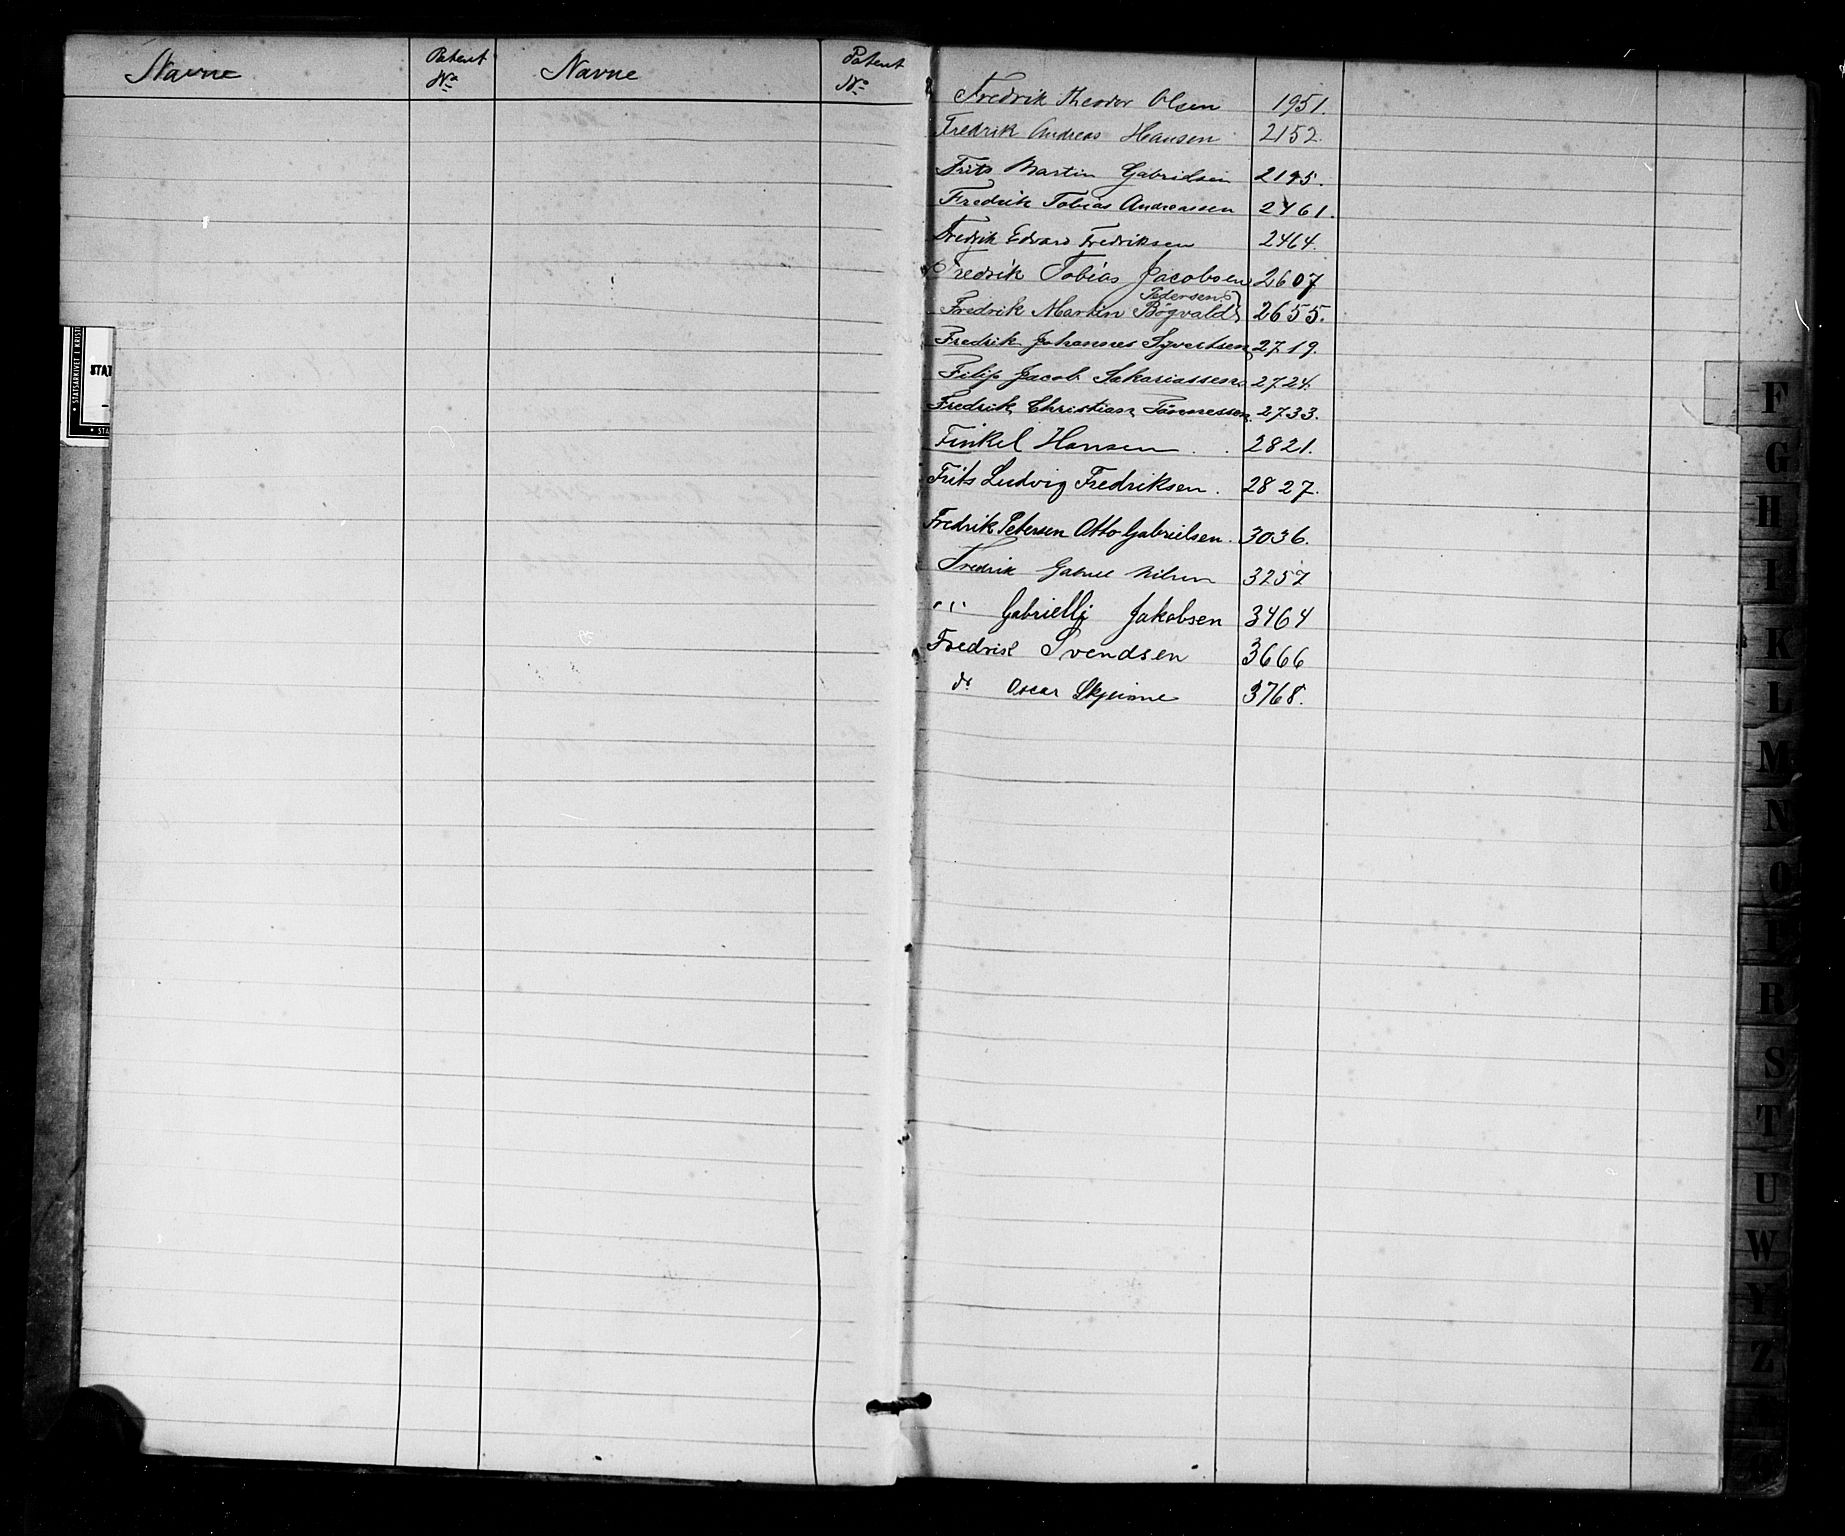 Navne Patent No Navne Patent No
Fredrik Theodor Olsen 1951.
Fredrik Andreas Hansen 2152.
Frits Martin Gabrielsen 2195.
Fredrik Tobias Andreassen 2461.
Fredrik Edvard Fredriksen 2464.
Fredrik Tobias Jacobsen 2607
Pedersen
Fredrik Martin Bögvald 2655.
Fredrik Johannes Syvertsen 2719.
Filip Jacob Sakariassen 2724.
Fredrik Christian Tönnessen 2733.
Finkel Hansen . . 2821.
Frits Ludvig Fredriksen . 2827.
Fredrik Petersen Otto Gabrielsen . 3036.
Fredrik Gabriel Nilsen 3257
" Jakobsen 3464
Fredrik Svendsen 3666
do Oscar Skjeime 3768.
STATSARKIVET I KRIST
STAT
STA
F
G
H
I
K
L
M
N
O
P
R
S
T
U
W
Y
Z